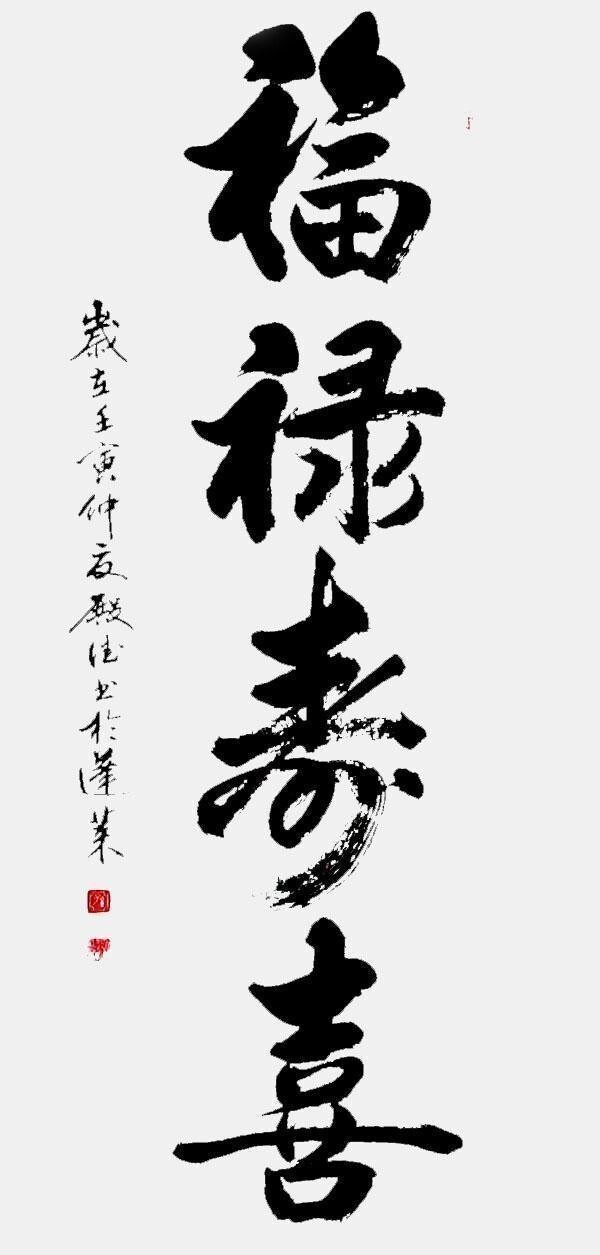 福禄寿喜
岁在壬寅仲夏殿德书於蓬莱